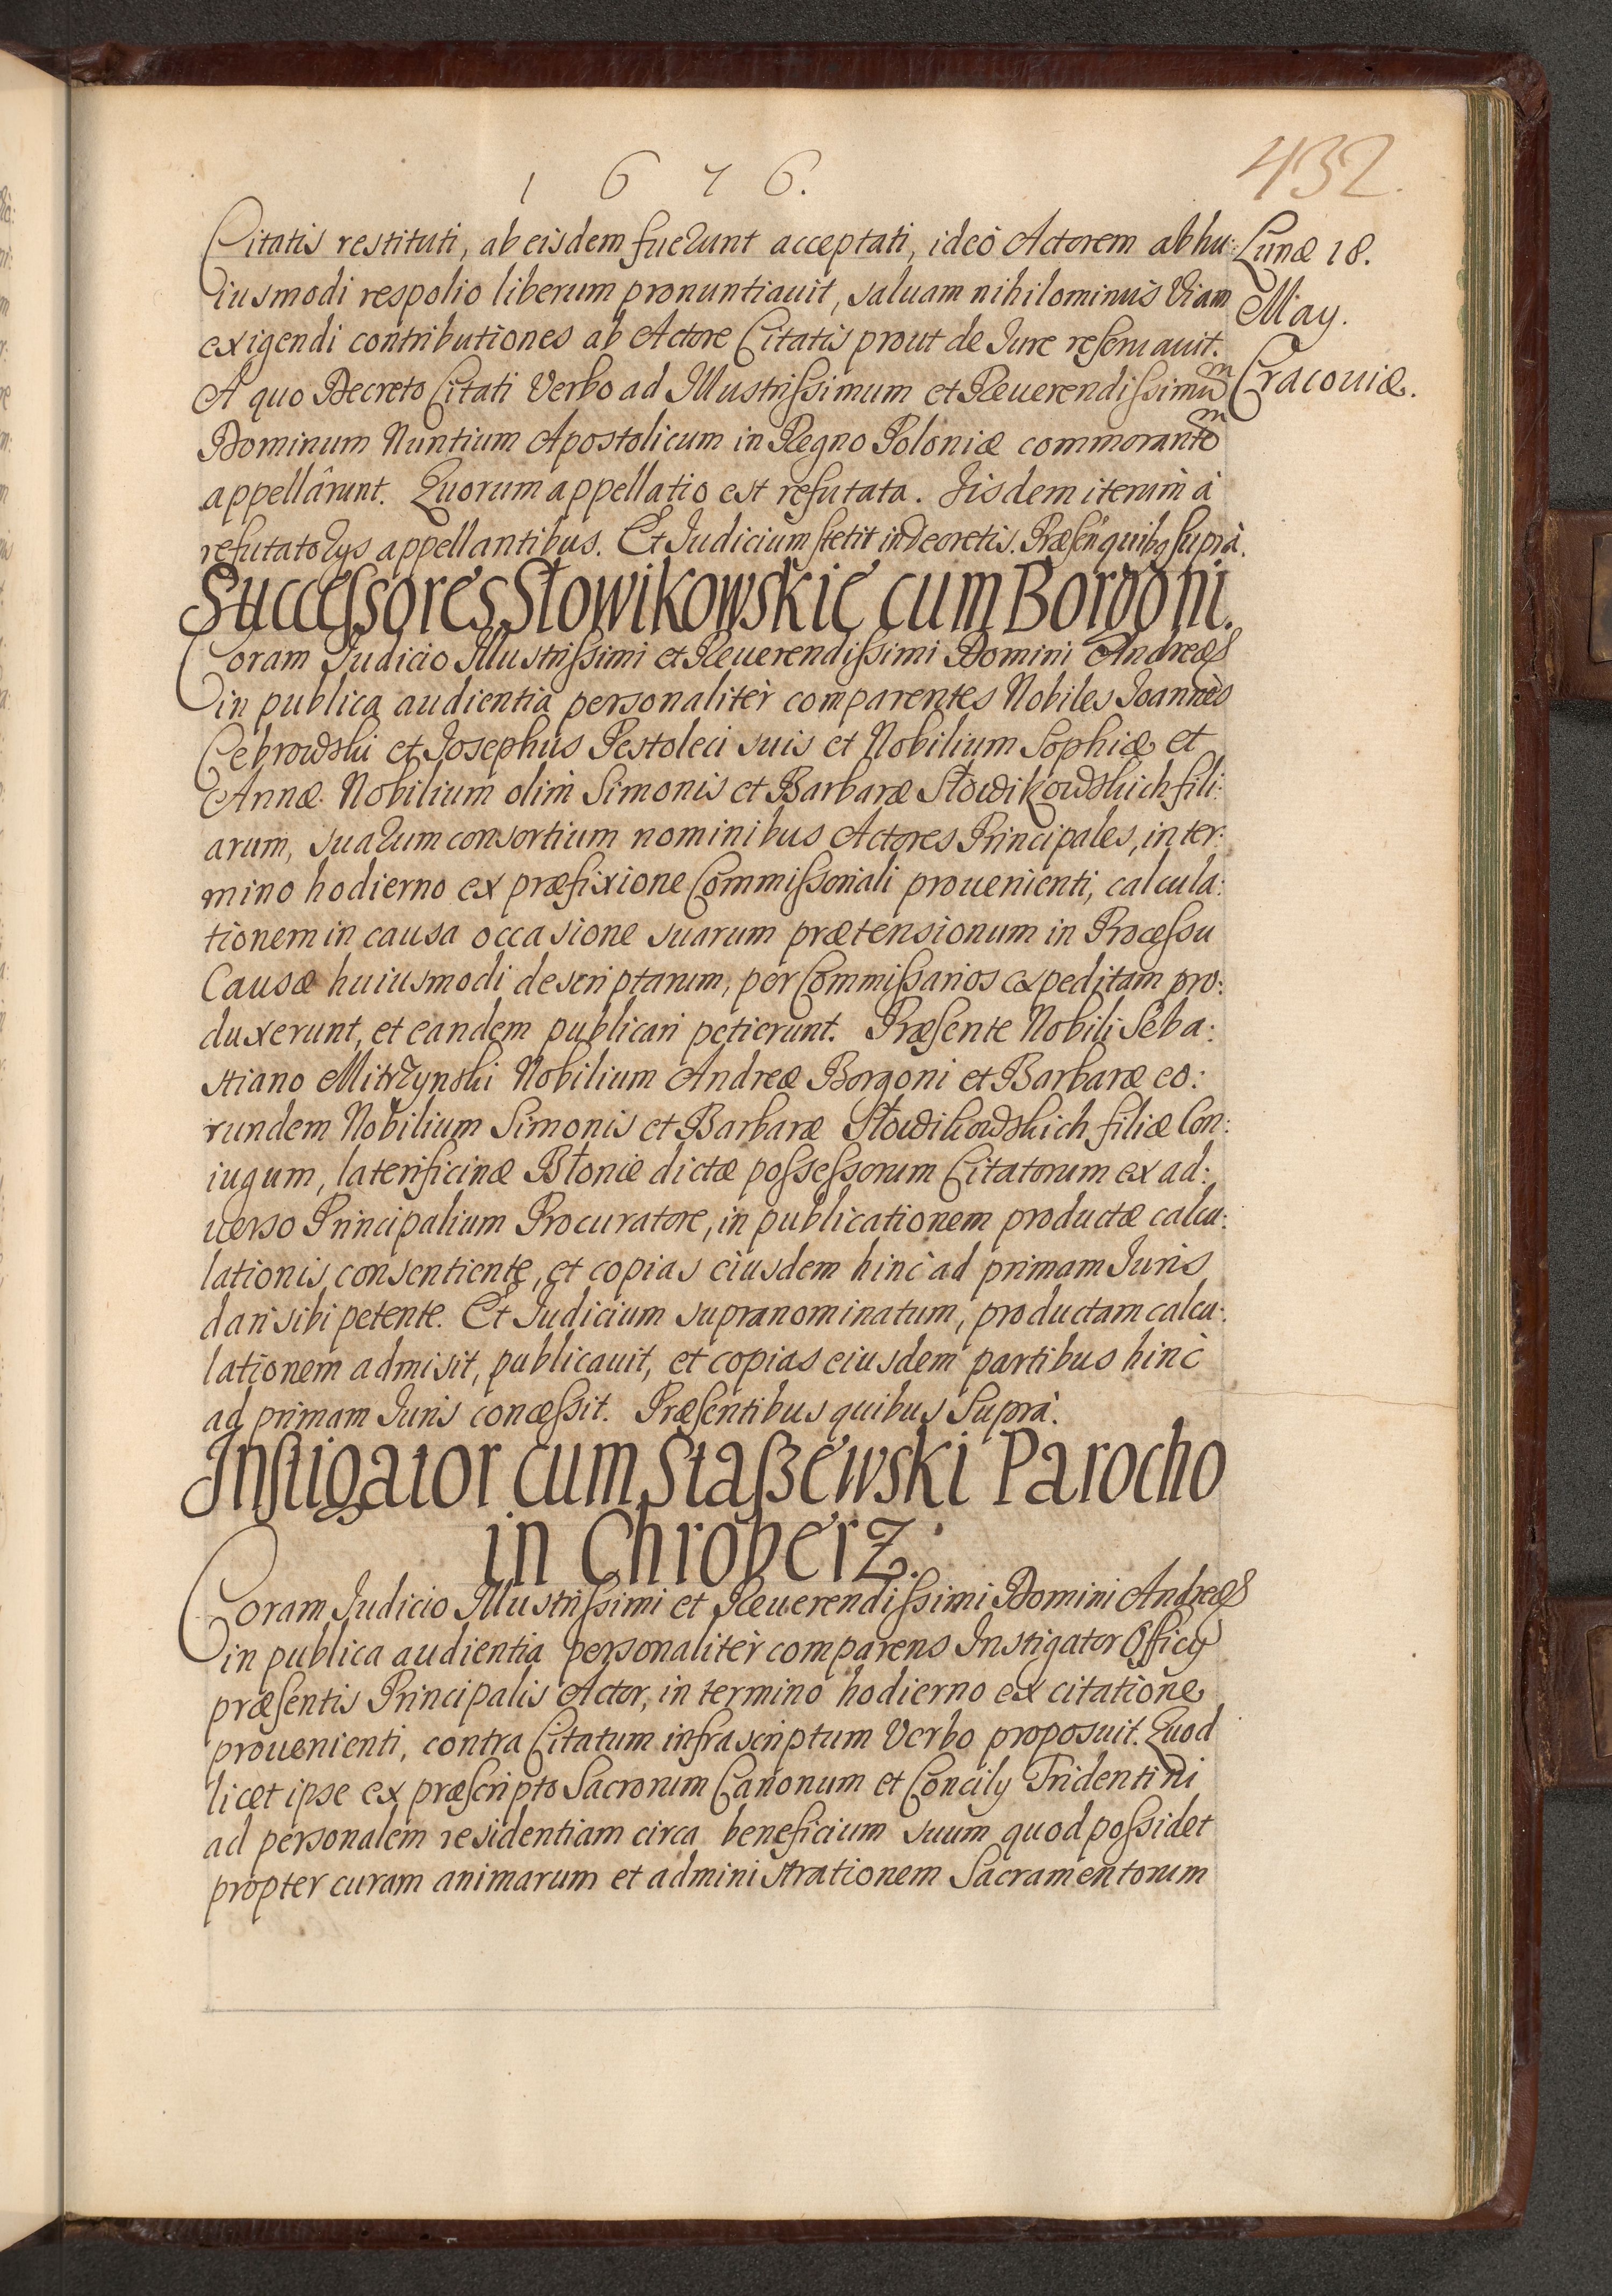 1 6 7 6.
432.
Citatis restituti, ab eisdem fuerunt acceptati, ideò Actorem ab hu:
iusmodi respolio liberum pronuntiauit, saluam nihilominus Viam
exigendi contributiones ab Actore Citatis prout de Iure reseruauit.
A quo Decreto Citati Verbo ad Illustrissimum et Reuerendissimum
Dominum Nuntium Apostolicum in Regno Poloniæ commorantem
appellârunt. Quorum appellatio est refutata. Iisdem iterùm à
refutatorijs appellantibus. Et Judicium stetit in decretis. Præsen quibꝫ suprà.
Lunæ 18.
May.
Cracouiæ.
Successores Słowikowskie cum Borgoni.
Coram Judicio Illustrissimi et Reuerendissimi Domini Andreæ &
in publica audientia personalitèr comparentes Nobiles Joannes
Cebrowski et Josephus Pestoleci suis et Nobilium Sophiæ et
Annæ Nobilium olim Simonis et Barbaræ Słowikowskich fili:
arum, suarum consortium nominibus Actores Principales, in ter:
mino hodierno ex præfixione Commissoriali prouenienti, calcula:
tionem in causa occasione suarum prætensionum in Processu
Causæ huiusmodi descriptarum, per Commissarios expeditam pro:
duxerunt, et eandem publicari petierunt. Præsente Nobili Seba:
stiano Mitrzynski Nobilium Andreæ Borgoni et Barbaræ eo:
rundem Nobilium Simonis et Barbaræ Słowikowskich filiæ Con:
iugum, laterificinæ Błonie dictæ possessorum Citatorum ex ad:
uerso Principalium Procuratore, in publicationem productæ calcu:
lationis consentiente, et copias eiusdem hinc ad primam Juris
dari sibi petente. Et Judicium supranominatum, productam calcu:
lationem admisit, publicauit, et copias eiusdem partibus hinc
ad primam Juris concessit. Præsentibus quibus Suprà.
Instigator cum Staszewski Parocho
in Chroberz.
Coram Judicio Illustrissimi et Reuerendissimi Domini Andreæ &
in publica audientia personalitèr comparens Instigator Officij
præsentis Principalis Actor, in termino hodierno ex citatione
prouenienti, contra Citatum infrascriptum Verbo proposuit. Quod
licet ipse ex præscripto Sacrorum Canonum et Concilij Tridentini
ad personalem residentiam circa beneficium suum quod possidet
propter curam animarum et administrationem Sacramentorum